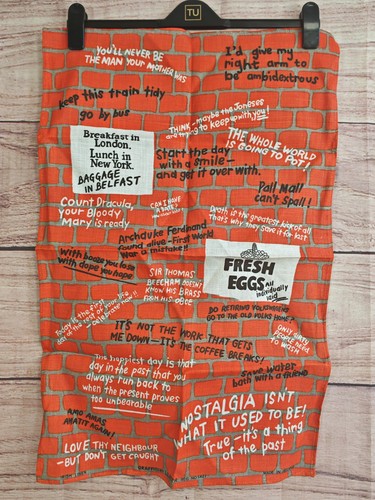 TU
YOU'LL NEVER BE
THE MAN YOUR MOTHER WAS
I'd give my
right arm to
be ambidextrous
keep this train tidy
go by bus
THINK - maybe the Joneses
are trying to keep up with you!
THE WHOLE WORLD
IS GOING TO POT!
Breakfast in
London.
Lunch in
New York.
BAGGAGE
IN BELFAST
Start the day
with a smile -
and get it over with.
Pall Mall
can't Spall!
Count Dracula,
your Bloody
Mary is ready
Death is the greatest kick of all
That's why they save it for last
Archduke Ferdinand
found alive - First World
War a mistake!!
With booze you lose
with dope you hope
SIR THOMAS
BEECHAM DOESN'T
KNOW HIS BRASS
FROM HIS OBOE
FRESH
EGGS
All
individually
laid
DO RETIRING VOLKSWAGENS
GO TO THE OLD VOLKS HOME
Today is the first
day of the rest of your life
IT'S NOT THE WORK THAT GETS
ME DOWN - IT'S THE COFFEE BREAKS!
ONLY DIRTY
PEOPLE NEED
TO WASH
The happiest day is that
day in the past that you
always run back to
when the present proves
too unbearable
Save water
bath with a friend
AMO AMAS
AMATIT AGAIN!
NOSTALGIA ISN'T
WHAT IT USED TO BE!
True - it's a thing
of the past
LOVE THY NEIGHBOUR
- BUT DON'T GET CAUGHT